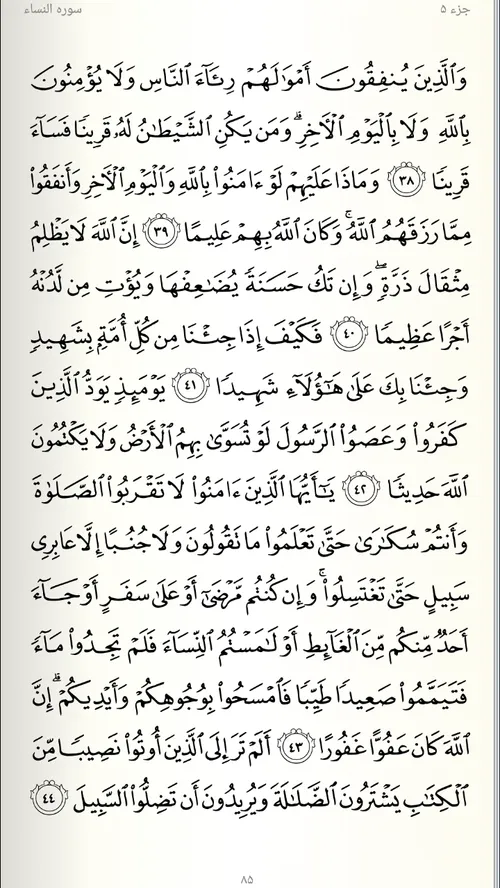 جزء ۵
سوره النساء
وَٱلَّذِينَ يُنفِقُونَ أَمۡوَٰلَهُمۡ رِئَآءَ ٱلنَّاسِ وَلَا يُؤۡمِنُونَ
بِٱللَّهِ وَلَا بِٱلۡيَوۡمِ ٱلۡأٓخِرِۗ وَمَن يَكُنِ ٱلشَّيۡطَٰنُ لَهُۥ قَرِينٗا فَسَآءَ
قَرِينٗا ٣٨ وَمَاذَا عَلَيۡهِمۡ لَوۡ ءَامَنُواْ بِٱللَّهِ وَٱلۡيَوۡمِ ٱلۡأٓخِرِ وَأَنفَقُواْ
مِمَّا رَزَقَهُمُ ٱللَّهُۚ وَكَانَ ٱللَّهُ بِهِمۡ عَلِيمًا ٣٩ إِنَّ ٱللَّهَ لَا يَظۡلِمُ
مِثۡقَالَ ذَرَّةٖۖ وَإِن تَكُ حَسَنَةٗ يُضَٰعِفۡهَا وَيُؤۡتِ مِن لَّدُنۡهُ
أَجۡرًا عَظِيمٗا ٤٠ فَكَيۡفَ إِذَا جِئۡنَا مِن كُلِّ أُمَّةِۭ بِشَهِيدٖ
وَجِئۡنَا بِكَ عَلَىٰ هَٰٓؤُلَآءِ شَهِيدٗا ٤١ يَوۡمَئِذٖ يَوَدُّ ٱلَّذِينَ
كَفَرُواْ وَعَصَوُاْ ٱلرَّسُولَ لَوۡ تُسَوَّىٰ بِهِمُ ٱلۡأَرۡضُ وَلَا يَكۡتُمُونَ
ٱللَّهَ حَدِيثٗا ٤٢ يَٰٓأَيُّهَا ٱلَّذِينَ ءَامَنُواْ لَا تَقۡرَبُواْ ٱلصَّلَوٰةَ
وَأَنتُمۡ سُكَٰرَىٰ حَتَّىٰ تَعۡلَمُواْ مَا تَقُولُونَ وَلَا جُنُبًا إِلَّا عَابِرِي
سَبِيلٍ حَتَّىٰ تَغۡتَسِلُواْۚ وَإِن كُنتُم مَّرۡضَىٰٓ أَوۡ عَلَىٰ سَفَرٍ أَوۡ جَآءَ
أَحَدٞ مِّنكُم مِّنَ ٱلۡغَآئِطِ أَوۡ لَٰمَسۡتُمُ ٱلنِّسَآءَ فَلَمۡ تَجِدُواْ مَآءٗ
فَتَيَمَّمُواْ صَعِيدٗا طَيِّبٗا فَٱمۡسَحُواْ بِوُجُوهِكُمۡ وَأَيۡدِيكُمۡۗ إِنَّ
ٱللَّهَ كَانَ عَفُوًّا غَفُورًا ٤٣ أَلَمۡ تَرَ إِلَى ٱلَّذِينَ أُوتُواْ نَصِيبٗا مِّنَ
ٱلۡكِتَٰبِ يَشۡتَرُونَ ٱلضَّلَٰلَةَ وَيُرِيدُونَ أَن تَضِلُّواْ ٱلسَّبِيلَ ٤٤
۸۵